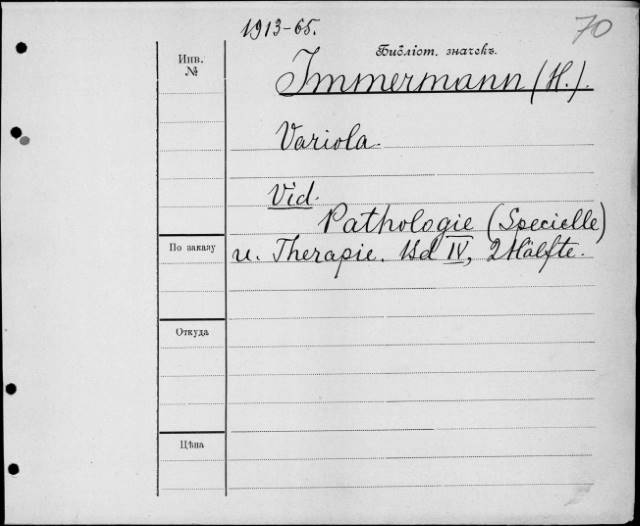 1913-65.
70
Библіот. значекъ.
Инв.
№
Immermann (H.).
Variola.
Vid.
Pathologie (Specielle)
По заказу
u. Therapie. Bd IV, 2 Hälfte.
Откуда
Цѣна